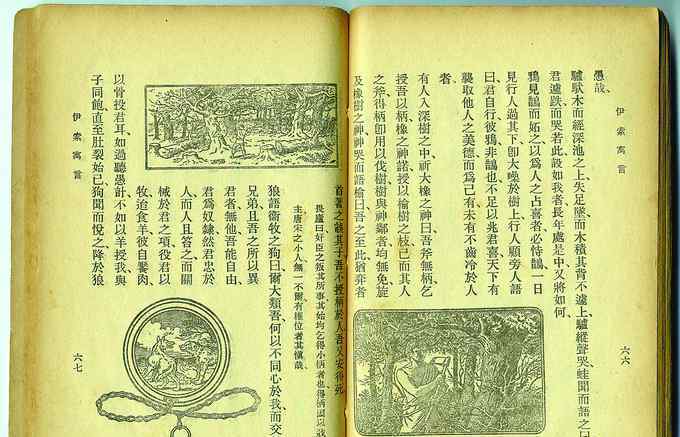 伊索寓言
愚哉、
驢馱木而經深池之上失足墜而木積其背不遽上驢縱聲哭蛙聞而語之曰
君遽跌而哭若此設如我者長年處是中又將如何、
鴉見鵲而妬之以爲人之占喜者必恃鵲一日
見行人過其下卽大噪於樹上行人顧旁人語
曰君自行彼鴉非鵲也不足以兆君喜天下有
襲取他人之美德而爲己有未有不齒冷於人
者、
有人入深樹之中祈大橡之神曰吾斧無柄乞
授吾以柄橡之神諾授以榆樹之枝已而其人
之斧得柄卽用以伐樹樹與神鄰者均無免旋
及橡樹之神神哭而語榆曰吾之至此猶弈者
六六
首著之誤其子吾不授柄於人吾又安得死
畏廬曰奸臣之叛其所事其始均乞得小柄者也得柄國以戕
主唐宋之小人無一不爾有權位者其愼哉、
狼語衞牧之狗曰爾大類吾何以不同心於我而交
兄弟且吾之所以異
君者無他吾能自由
君爲奴隸然君忠於
人而人且答之而關
械於君之項役君以
牧迨食羊彼自饗肉
以骨投君耳如過聽愚計不如以羊授我與
子同飽直至肚裂始已狗聞而悅之降於狼
伊索寓言
六七